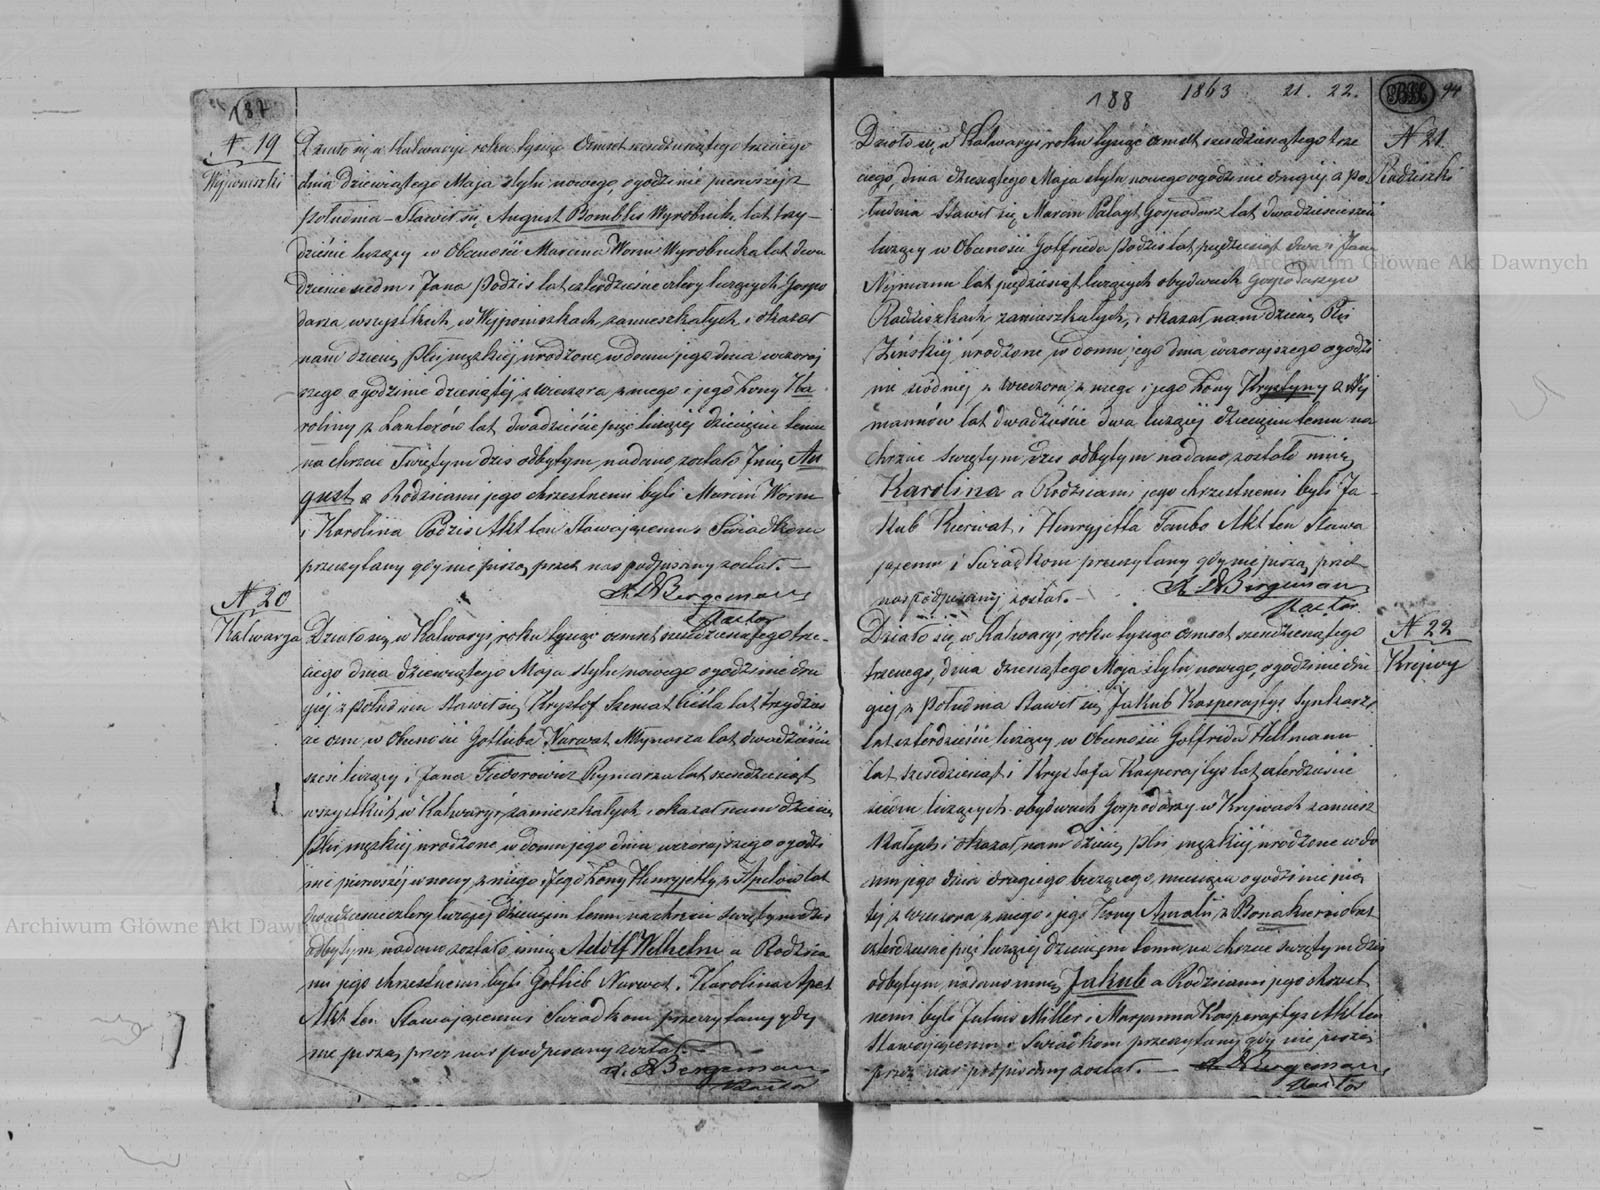 187
N. 19
Wyponiszki
Działo się w Kalwaryi roku tysiąc ośmset sześdziesiątego trzeciego
dnia dziewiątego Maja stylu nowego o godzinie pierwszej z
południa – Stawił się August Bomblis Wyrobnik, lat trzy–
dzieście liczący w Obecności Marcina Worm Wyrobnika lat dwa
dzieście siedm i Jana Podzis lat czterdzieście cztery liczących Gospo
darza, wszystkich w Wyponiszkach zamieszkałych i okazał
nam dziecię płci męzkiej urodzone w domu jego dnia wczoraj
szego o godzinie dziesiątej z wieczora z niego i jego Żony Ka
roliny z lat dwadzieście pięć liczącej dziecięciu temu
na chrzcie Świętym dziś odbytym, nadano zostało Imię Au
gust a Rodzicami jego chrzestnemi byli Marcin Worm
i Karolina Podzis Akt ten Stawającemu i Świadkom
przeczytany gdy nie piszą, przez nas podpisany został. —
Bergemann
Pastor
N. 20
Kalwarya
Działo się w Kalwaryi, roku tysiąc ośmset sześdziesiątego trze–
ciego dnia dziewiątego Maja stylu nowego o godzinie dru
giéj z południa Stawił się Krysztof Szemat Cieśla lat trzydzies
ci ośm, w Obecności Gotlieba Narwat Młynarza lat dwadzieście
sześć liczący i Jana Fiedorowicz Rymarza lat sześdziesiąt
wszystkich w Kalwaryi zamieszkałych i okazał nam dziecię
płci męzkiej urodzone w domu jego dnia wczorajszego o godzi
nie pierwszéj w nocy z niego i Jego Żony Henryjetty z Apelów lat
dwadzieście cztery liczącej Dziecięciu temu na chrzcie świętym dziś
odbytym nadano zostało imię Adolf Wilhelm a Rodzica
mi jego chrzestnemi byli Gotlieb Narwat i Karolina Apel
Akt ten Stawającemu i Świadkom przeczytany gdy
nie piszą przez nas podpisany został. —
Bergemann
Pastor
188 1863 21. 22. 94
N 21.
Radziszki
Działo się w Kalwaryi, roku tysiąc ośmset sześdziesiątego trze
ciego, dnia dziesiątego Maja stylu nowego o godzinie drugiej z po
łudnia Stawił się Marcin Palayt Gospodarz lat dwadzieście sześć
liczący w Obecności Gotfrieda Podzis lat pięćdziesiąt dwa i Jana
Nejmann lat pięćdziesiąt liczących obydwuch Gospodarzy w
Radziszkach zamieszkałych, i okazał nam dziecię Płci
Żeńskiéj urodzone, w domu jego dnia wczorajszego o godzi
nie siódmej z wieczora z niego i jego Żony Krystyny z Nej
mannów lat dwadzieście dwa liczącej dziecięciu temu na
chrzcie świętym, dziś odbytym nadano, zostało imię
Karolina a Rodzicami jego chrzestnemi byli Ja–
kub Kierwat i Henryjetta Taube Akt ten Stawa
jącemu i Świadkom przeczytany gdy nie piszą, przez
nas podpisany został.
Bergemann
Pastor.
N 22
Krejwy
Działo się, w Kalwaryi, roku tysiąc ośmset sześdziesiątego
trzeciego, dnia dziesiątego Maja stylu nowego, o godzinie dru
giej, z południa Stawił się Jakub Kasperajtys Synkarz,
lat czterdzieście liczący, w Obecności Gotfrida Hellmann
lat sześdziesiąt i Krysztofa Kasperajtys lat czterdzieście
siedm liczących obydwuch Gospodarzy w Krejwach zamiesz
kałych i okazał nam dziecię płci męzkiej urodzone w do
mu jego dnia drugiego bieżącego, miesiąca o godzinie pią
tej z wieczora z niego i jego Żony Amalii, z lat
czterdzieście pięć liczącej dziecięciu temu, na chrzcie świętym dziś
odbytym, nadano imię Jakub a Rodzicami jego chrzest
nemi byli Juljus Miller i Maryanna Kasperajtys Akt ten
Stawającemu i Świadkom przeczytany gdy nie piszą
przez nas podpisany został. —
Bergemann
Pastor
Archiwum Główne Akt Dawnych
Archiwum Główne Akt Dawnych